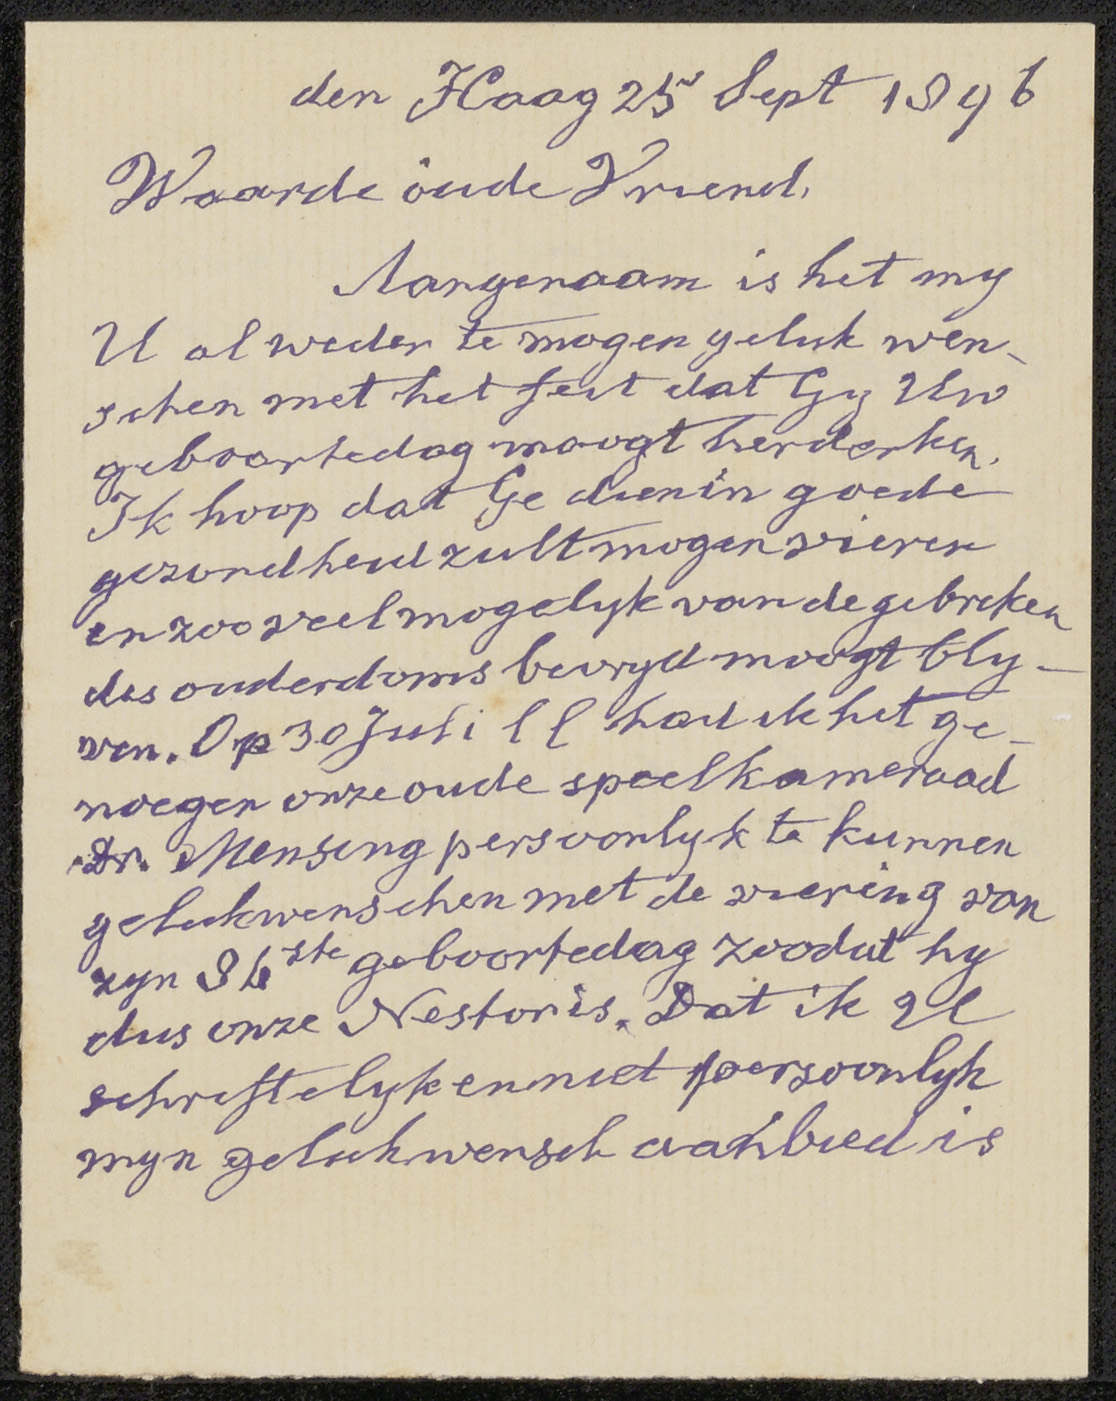 den Haag 25 Sept 1896
Waarde oude Vriend.
Aangenaam is het my
U al weder te mogen geluk wen-
schen met het feit dat Gy Uw
geboortedag moogt herdenken.
Ik hoop dat Ge dien in goede
gezondheid zult mogen vieren
en zoo veel mogelyk van de gebreken
des ouderdoms bevryd moogt bly-
ven. Op 30 Juli l l had ik het ge-
noegen onze oude speelkameraad
Dr. Mensing persoonlyk te kunnen
gelukwenschen met de viering van
zyn 86ste geboortedag zoodat hy
dus onze Nestor is. Dat ik U
schriftelyk en niet persoonlyk
myn gelukwensch aanbied is